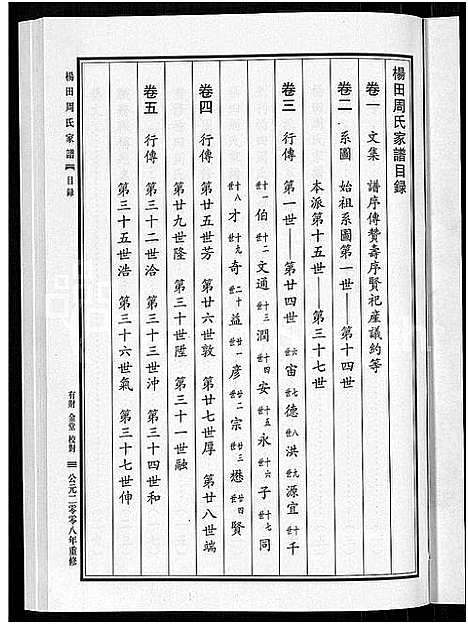 楊田周氏家譜目錄
卷一 文集 譜序傳贊壽序賢祀產議約等
卷二 系圖 始祖系圖第一世——第十四世
本派第十五世——第三十七世
卷三 行傳 第一世——第廿四世 六世宙 七世德 八世洪 九世源宜 十世千
十一世伯 十二世文通 十三世潤 十四世安 十五世永 十六世子 十七世同
十八世才 十九世奇 二十世益 廿一世彥 廿二世宗 廿三世懋 廿四世賢
卷四 行傳 第廿五世芳 第廿六世敦 第廿七世厚 第廿八世端
第廿九世隆 第三十世陞 第三十一世融
卷五 行傳 第三十二世洽 第三十三世沖 第三十四世和
第三十五世浩 第三十六世氣 第三十七世伸
楊田周氏家譜 目錄 有財 金堂 校對 公元二零零八年重修